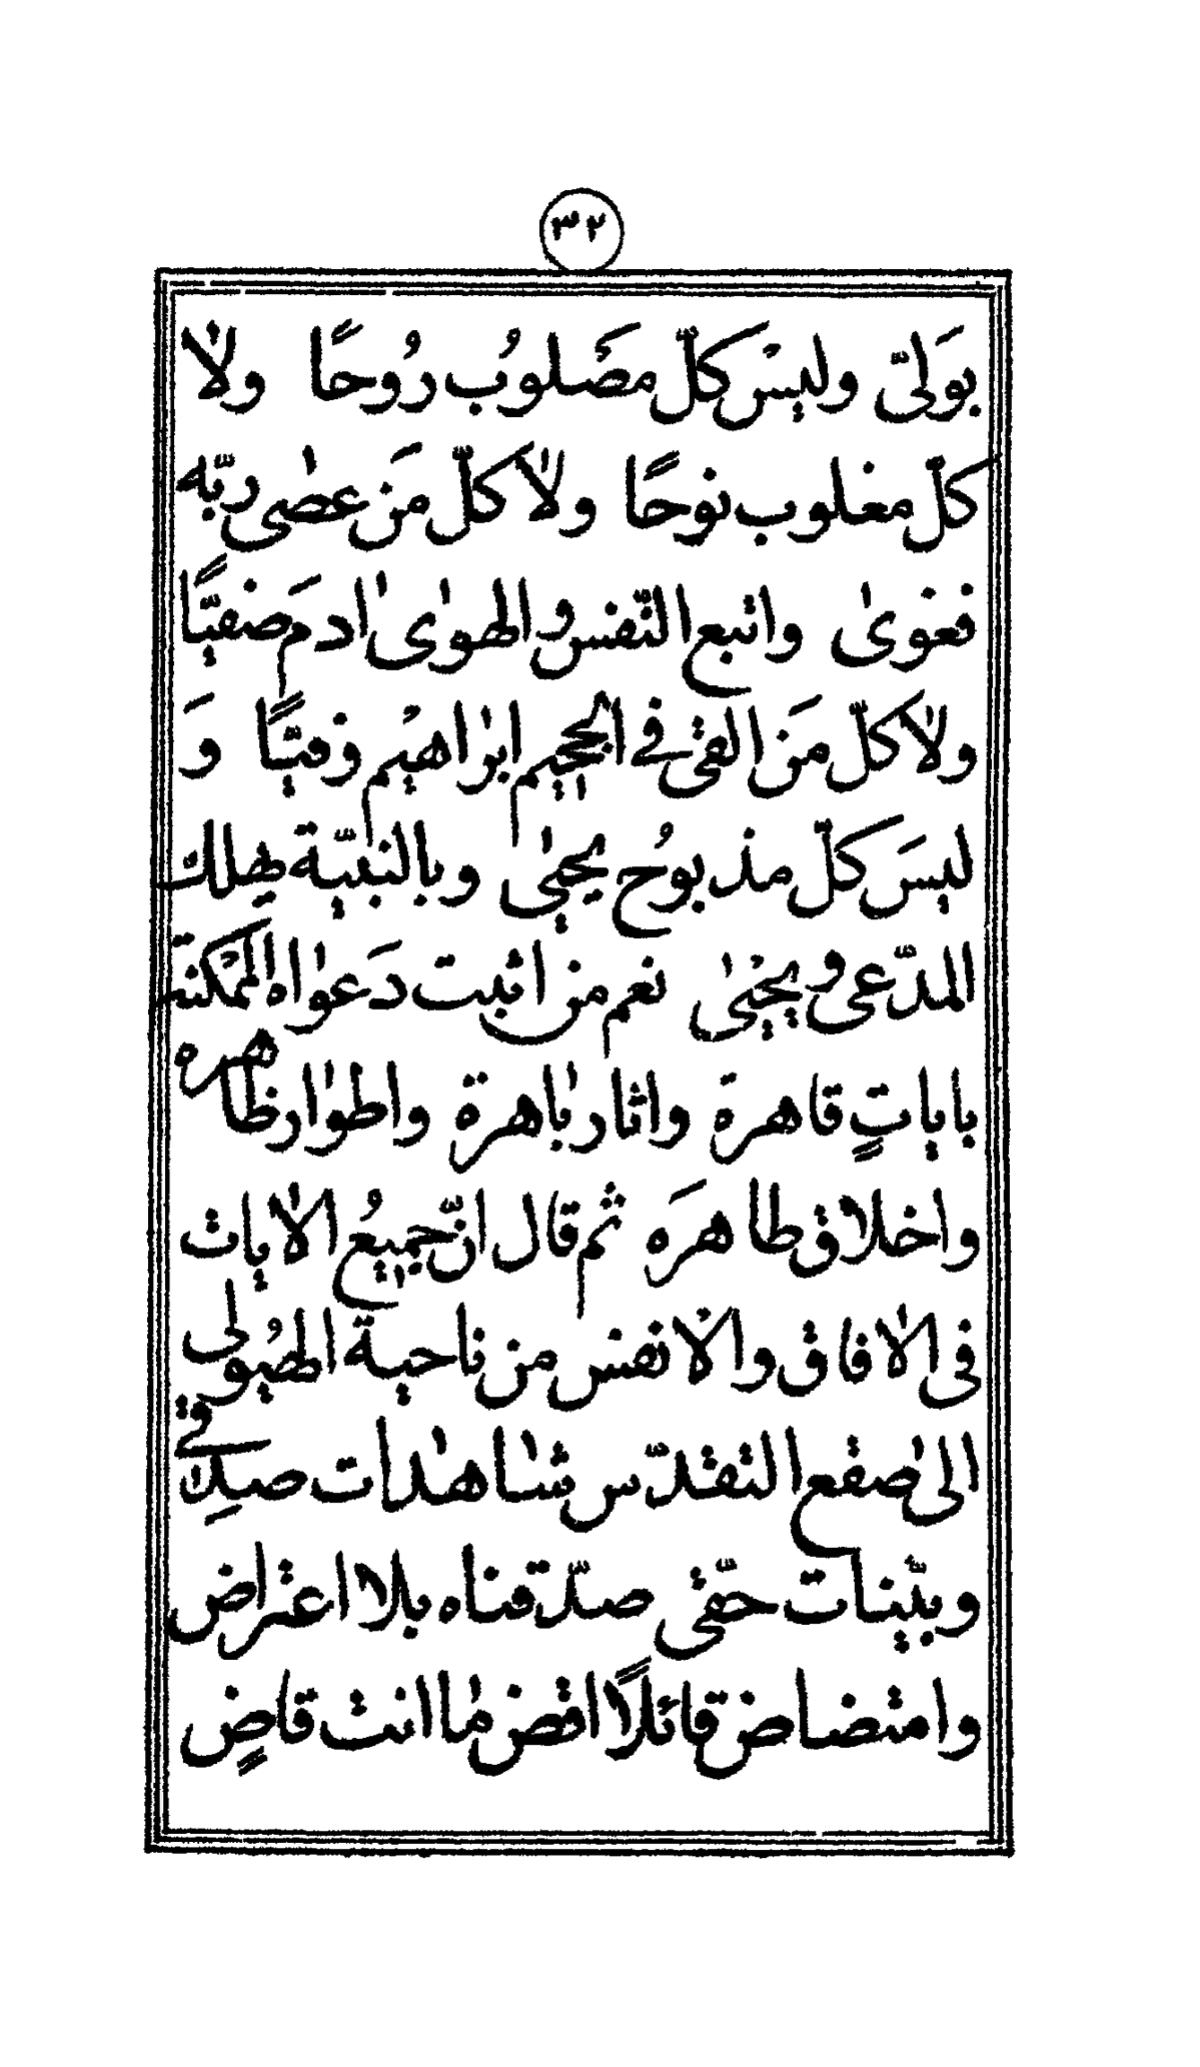 ٣٢
بوَلىّ وليسْ كلّ مصَلوبُ رُوحًا ولا
كلّ مغلوب نوحًا ولا كلّ مَن عصٰى ربّه
فغوىٰ واتبع النّفس والهوىٰ ادمَ صفيّا
ولا كلّ مَن القى فى الجحيم ابرٰاهيْم وفيّا وَ
ليسَ كلّ مذبوُح يحيىٰ وبالنبيّة يهلك
المدّعى ويحيىٰ نعم من اثبت دَعواه الممْكنة
باياتٍ قاهرة واثار باهرة واطوٰار ظاهره
واخلاق طاهرَه ثم قال انّ جميعُ الايات
فى الافاق والانفس من ناحية الهيُولى
الىٰ صقع التقدّس شاهدات صدِق
وبيّنات حقّى صدّقناه بلا اعتراض
وامتضاض قائلًا اقض مٰا انت قاضٍ
فى